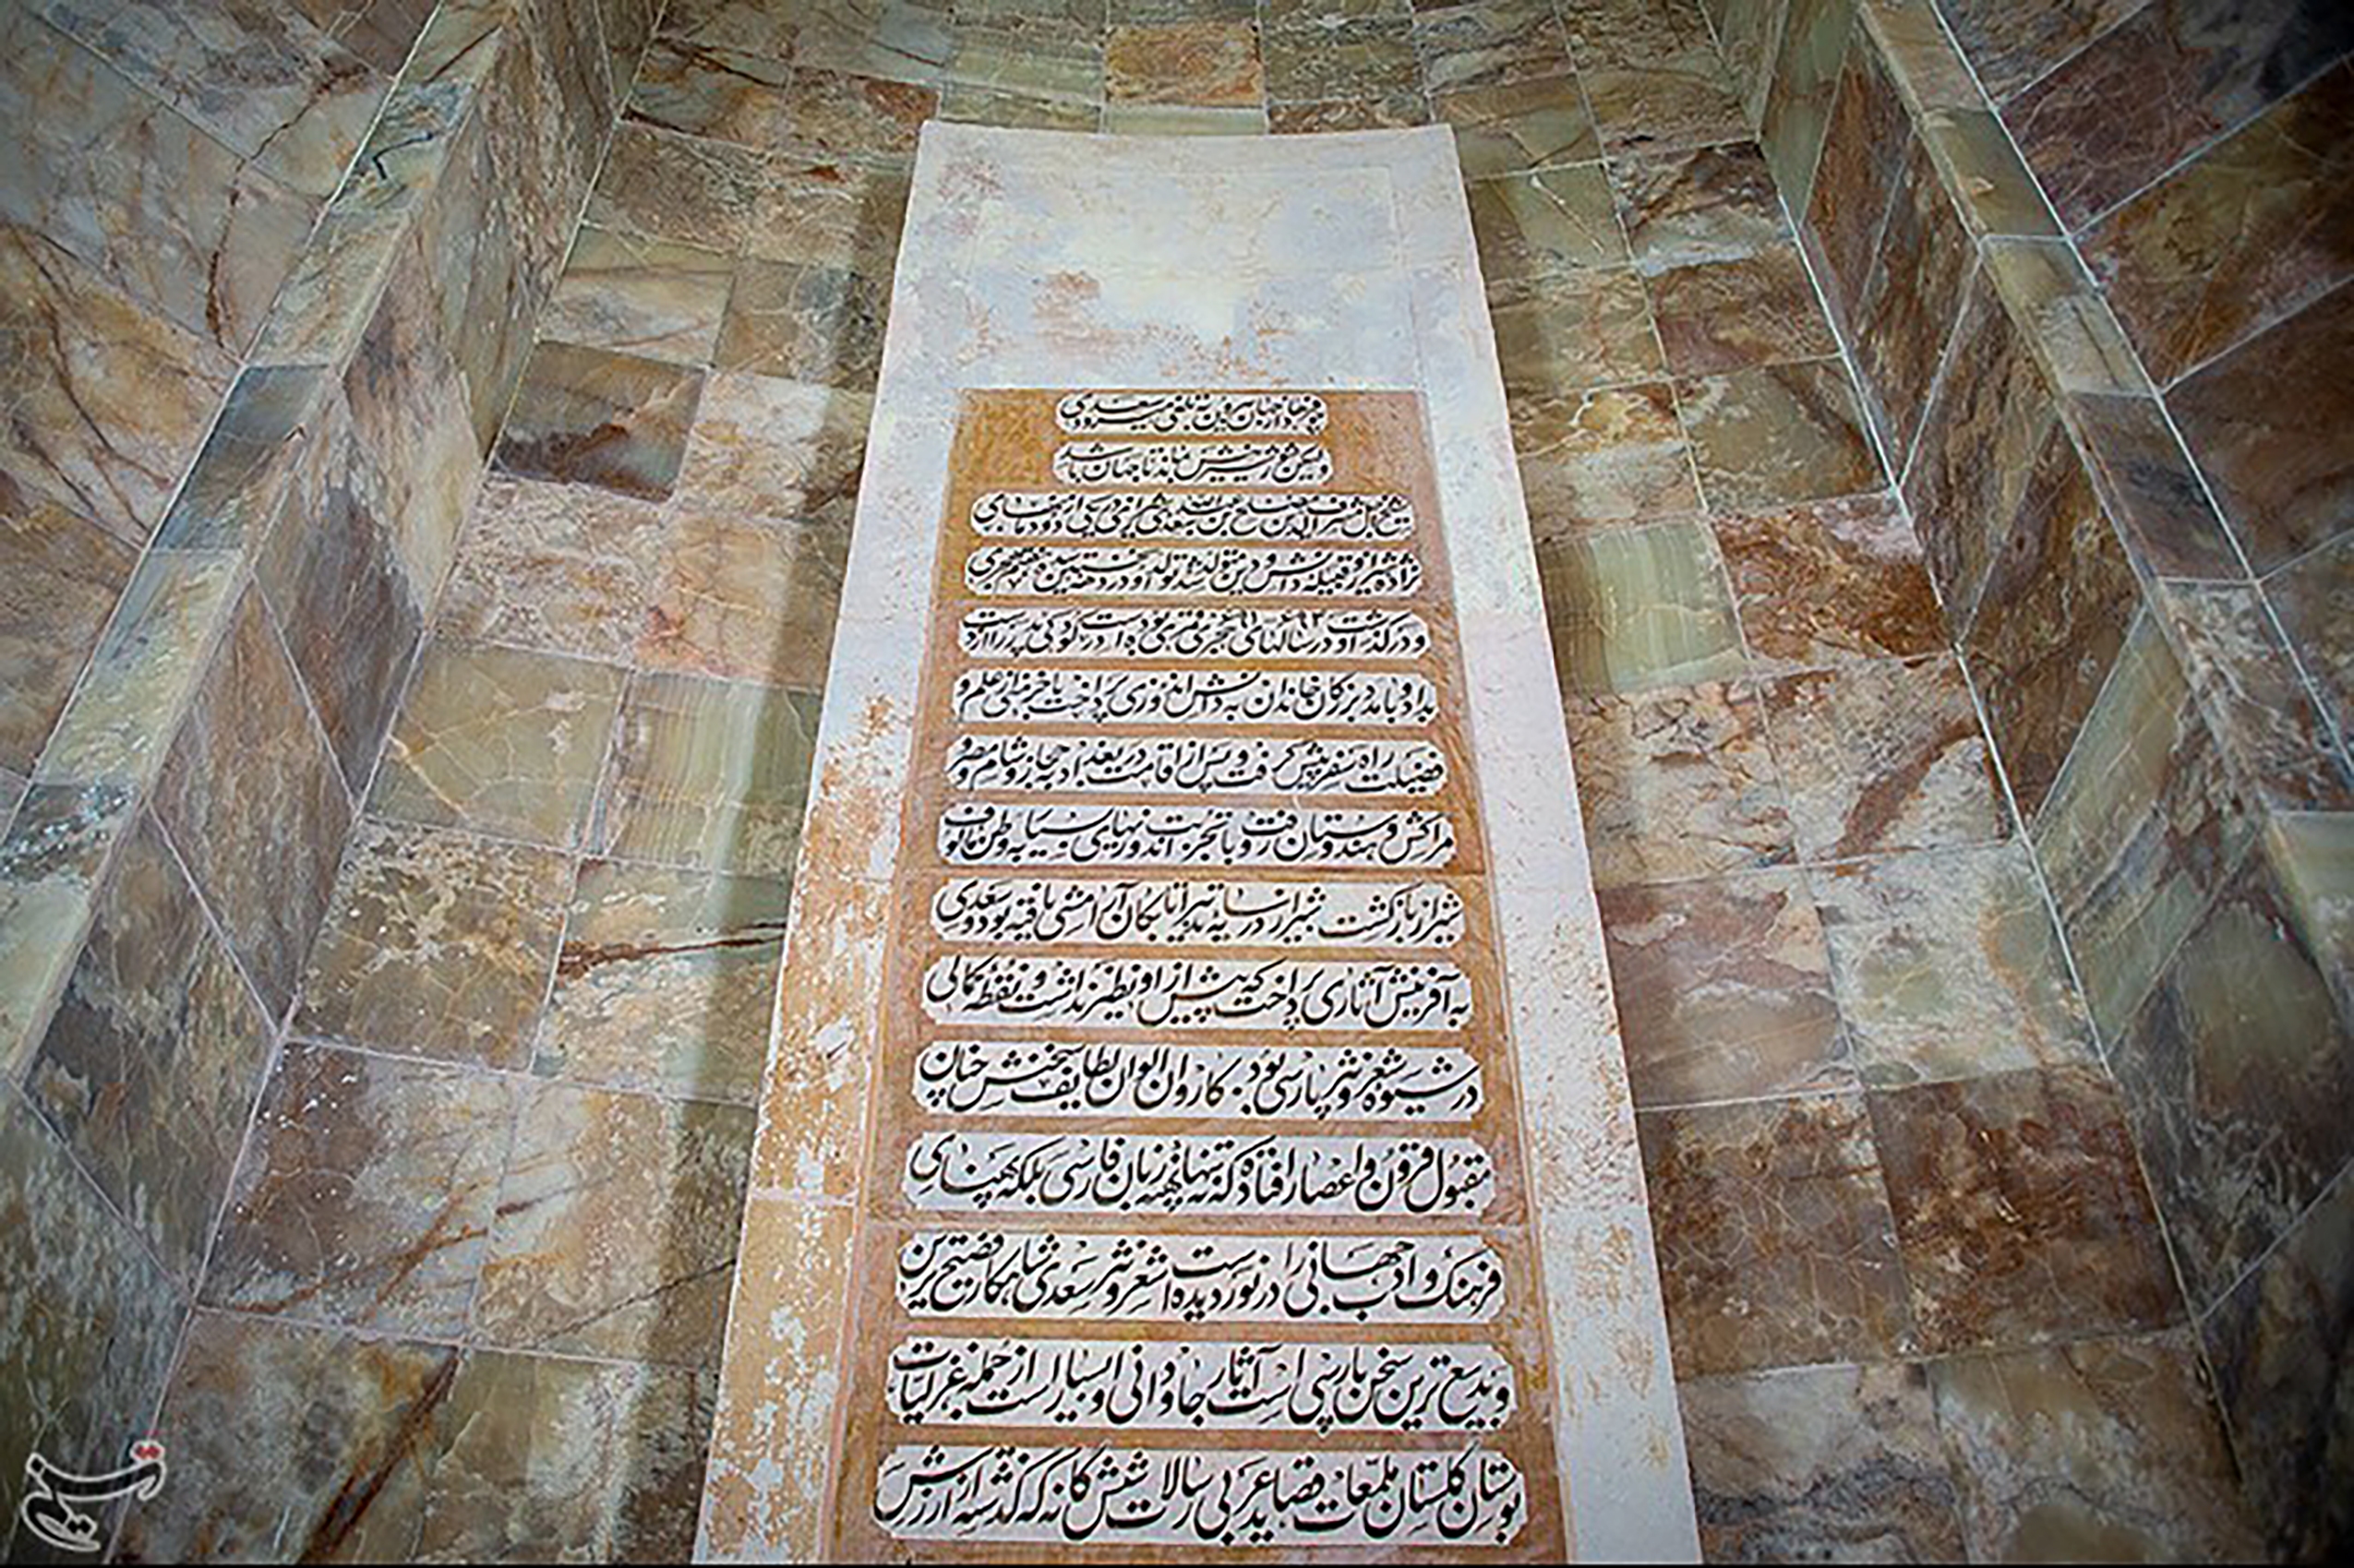 ز خانه جهان بیرون به تلخی میرود سعدی
ولیکن شور شیرینش بماند تا جهان باشد
شیخ اجل مشرف الدین مصلح بن عبدالله سعدی شیرازی یکی از دودمانهای
نژاده شیراز و قبیله دانش و دین متولد شد تولد او در نخستین دهه سده هفتم هجری
و درگذشت او در سالهای ۶۹۱ ۶۹۲ هجری قمری بوده است در کودکی پدر را از دست
بداد و با مدد بزرگان خاندان به دانش اندوزی پرداخت با خرمنی از علم و
فضیلت راه سفر پیش گرفت و پس از اقامت در بغداد به حجاز و شام و مصر و
مراکش و هندوستان رفت و با تجربت اندوزیهای بسیار به وطن مألوف
شیراز بازگشت شیراز در سایه تدبیر اتابکان آرامشی یافته بود و سعدی
به آفرینش آثاری پرداخت که پیش از او نظیر نداشت و نقطه کمالی
در شیوه شعر و نثر پارسی بود کاروان الوان لطایف سخنش چنان
مقبول قرون و اعصار افتاد که نه تنها پهنه زبان فارسی بلکه پهنای
فرهنگ و ادب جهانی را در نوردیده است شعر و نثر سعدی شاهکار فصیح ترین
و بدیع ترین سخن پارسی است آثار جاودانی او بسیار است از جمله غزلیات
بوستان گلستان ملمعات قصاید عربی رسالات شش گانه که گذشته از ارزش
تسنیم